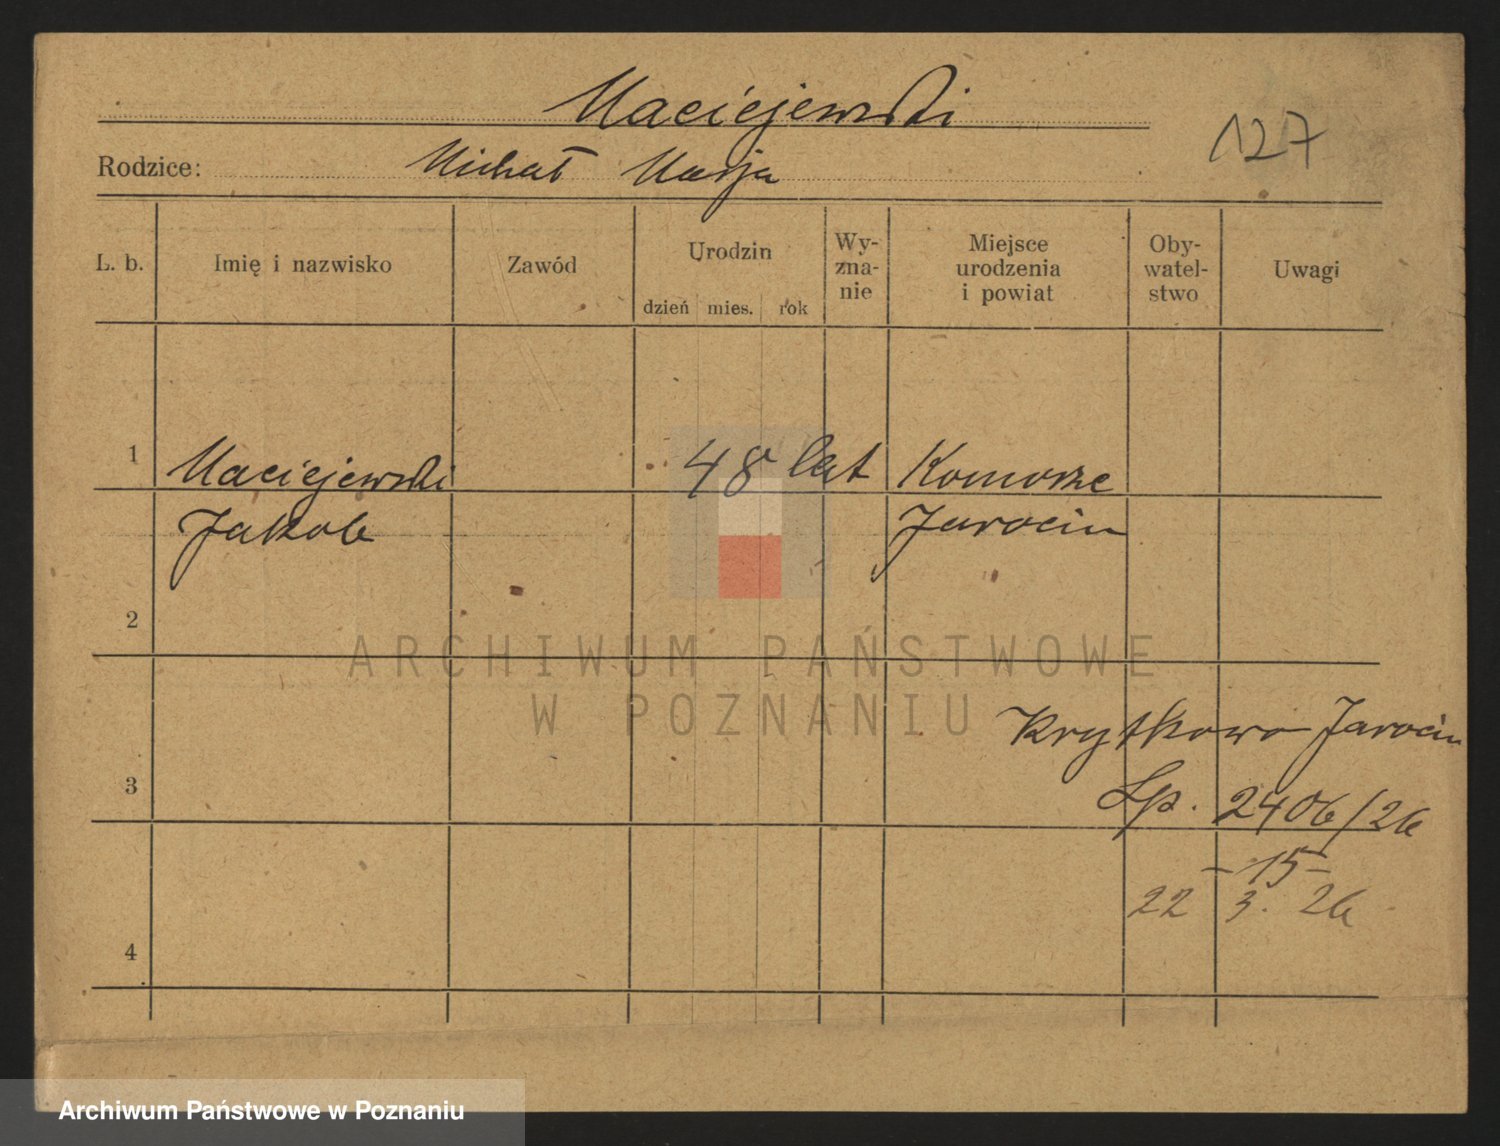 Maciejewski
127
Rodzice: Michał Marja
L. b. Imię i nazwisko Zawód Urodzin Wy-zna-nie Miejsce urodzenia i powiat Oby-watel-stwo Uwagi
dzień mies. rok
1 Maciejewski 48 lat Komorze
Jakob Jarocin
2
ARCHIWUM PAŃSTWOWE
W POZNANIU
Krytkowo Jarocin
3
Lp. 2406/26
-15-
22 3. 26
4
Archiwum Państwowe w Poznaniu